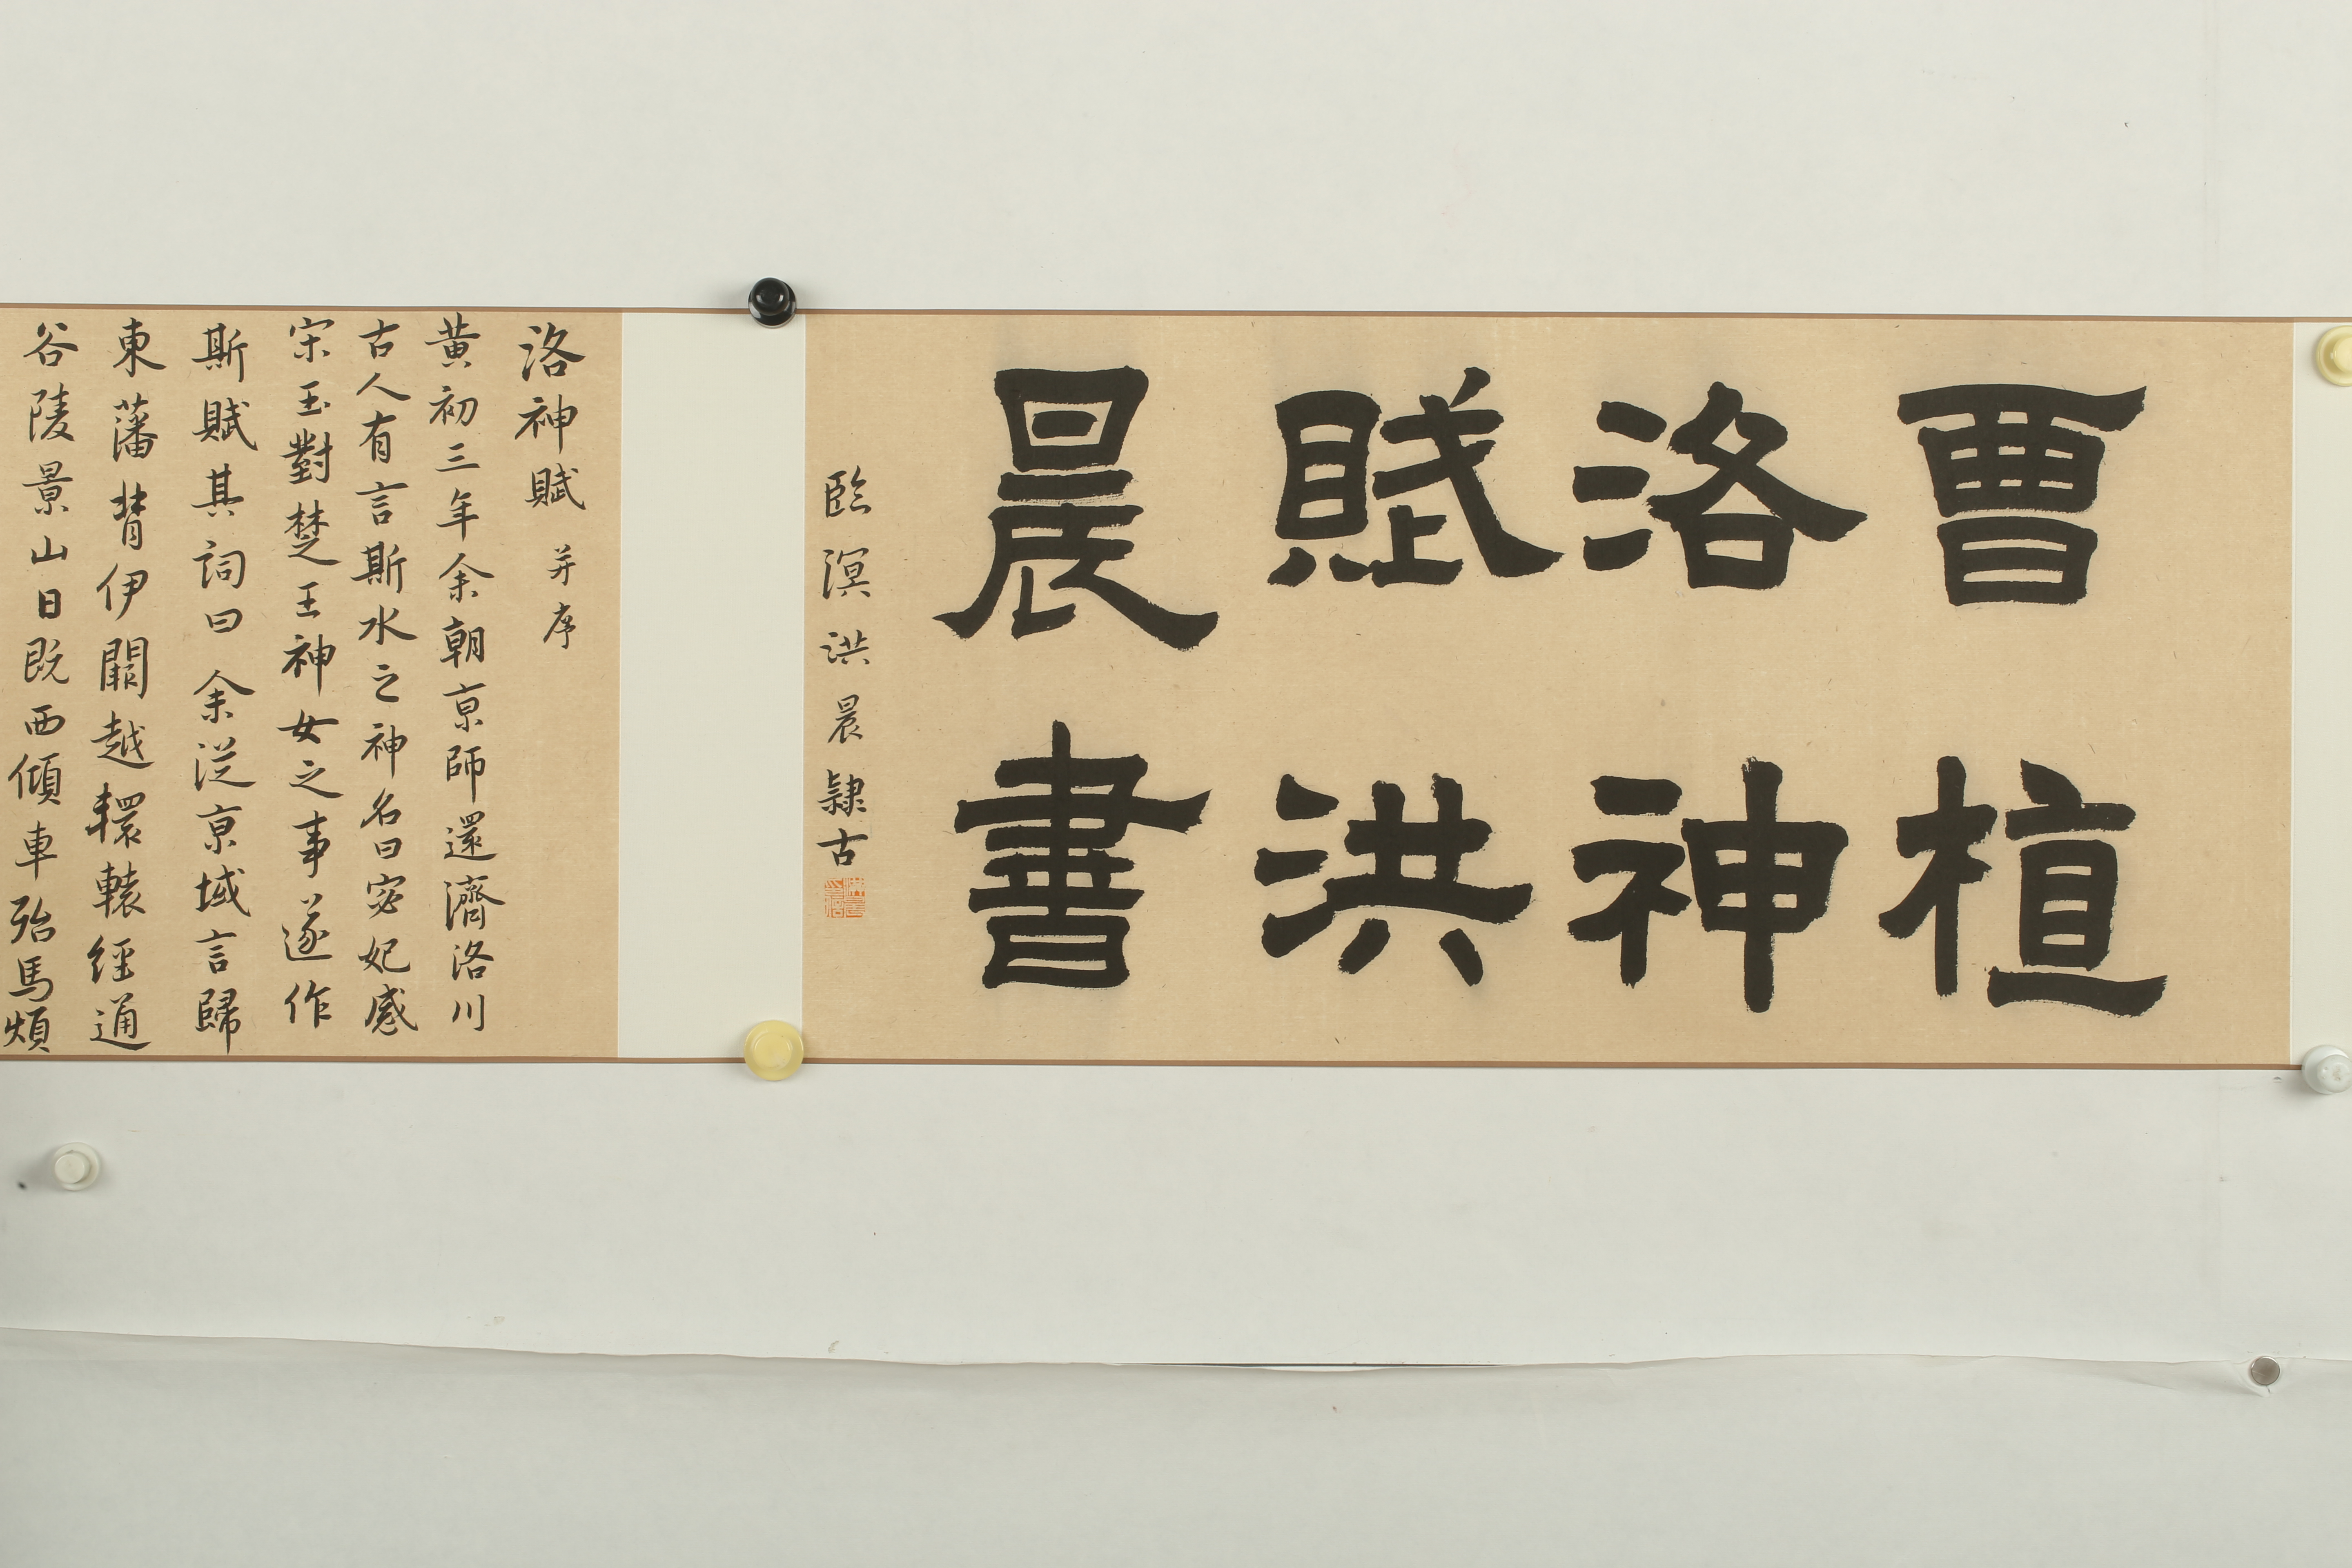 曹植
洛神
賦洪
晨書
臨溟洪晨隸古
洛神賦 并序
黃初三年余朝京師還濟洛川
古人有言斯水之神名曰宓妃感
宋玉對楚王神女之事遂作
斯賦其詞曰余從京域言歸
東藩背伊闕越轘轅經通
谷陵景山日既西傾車殆馬煩